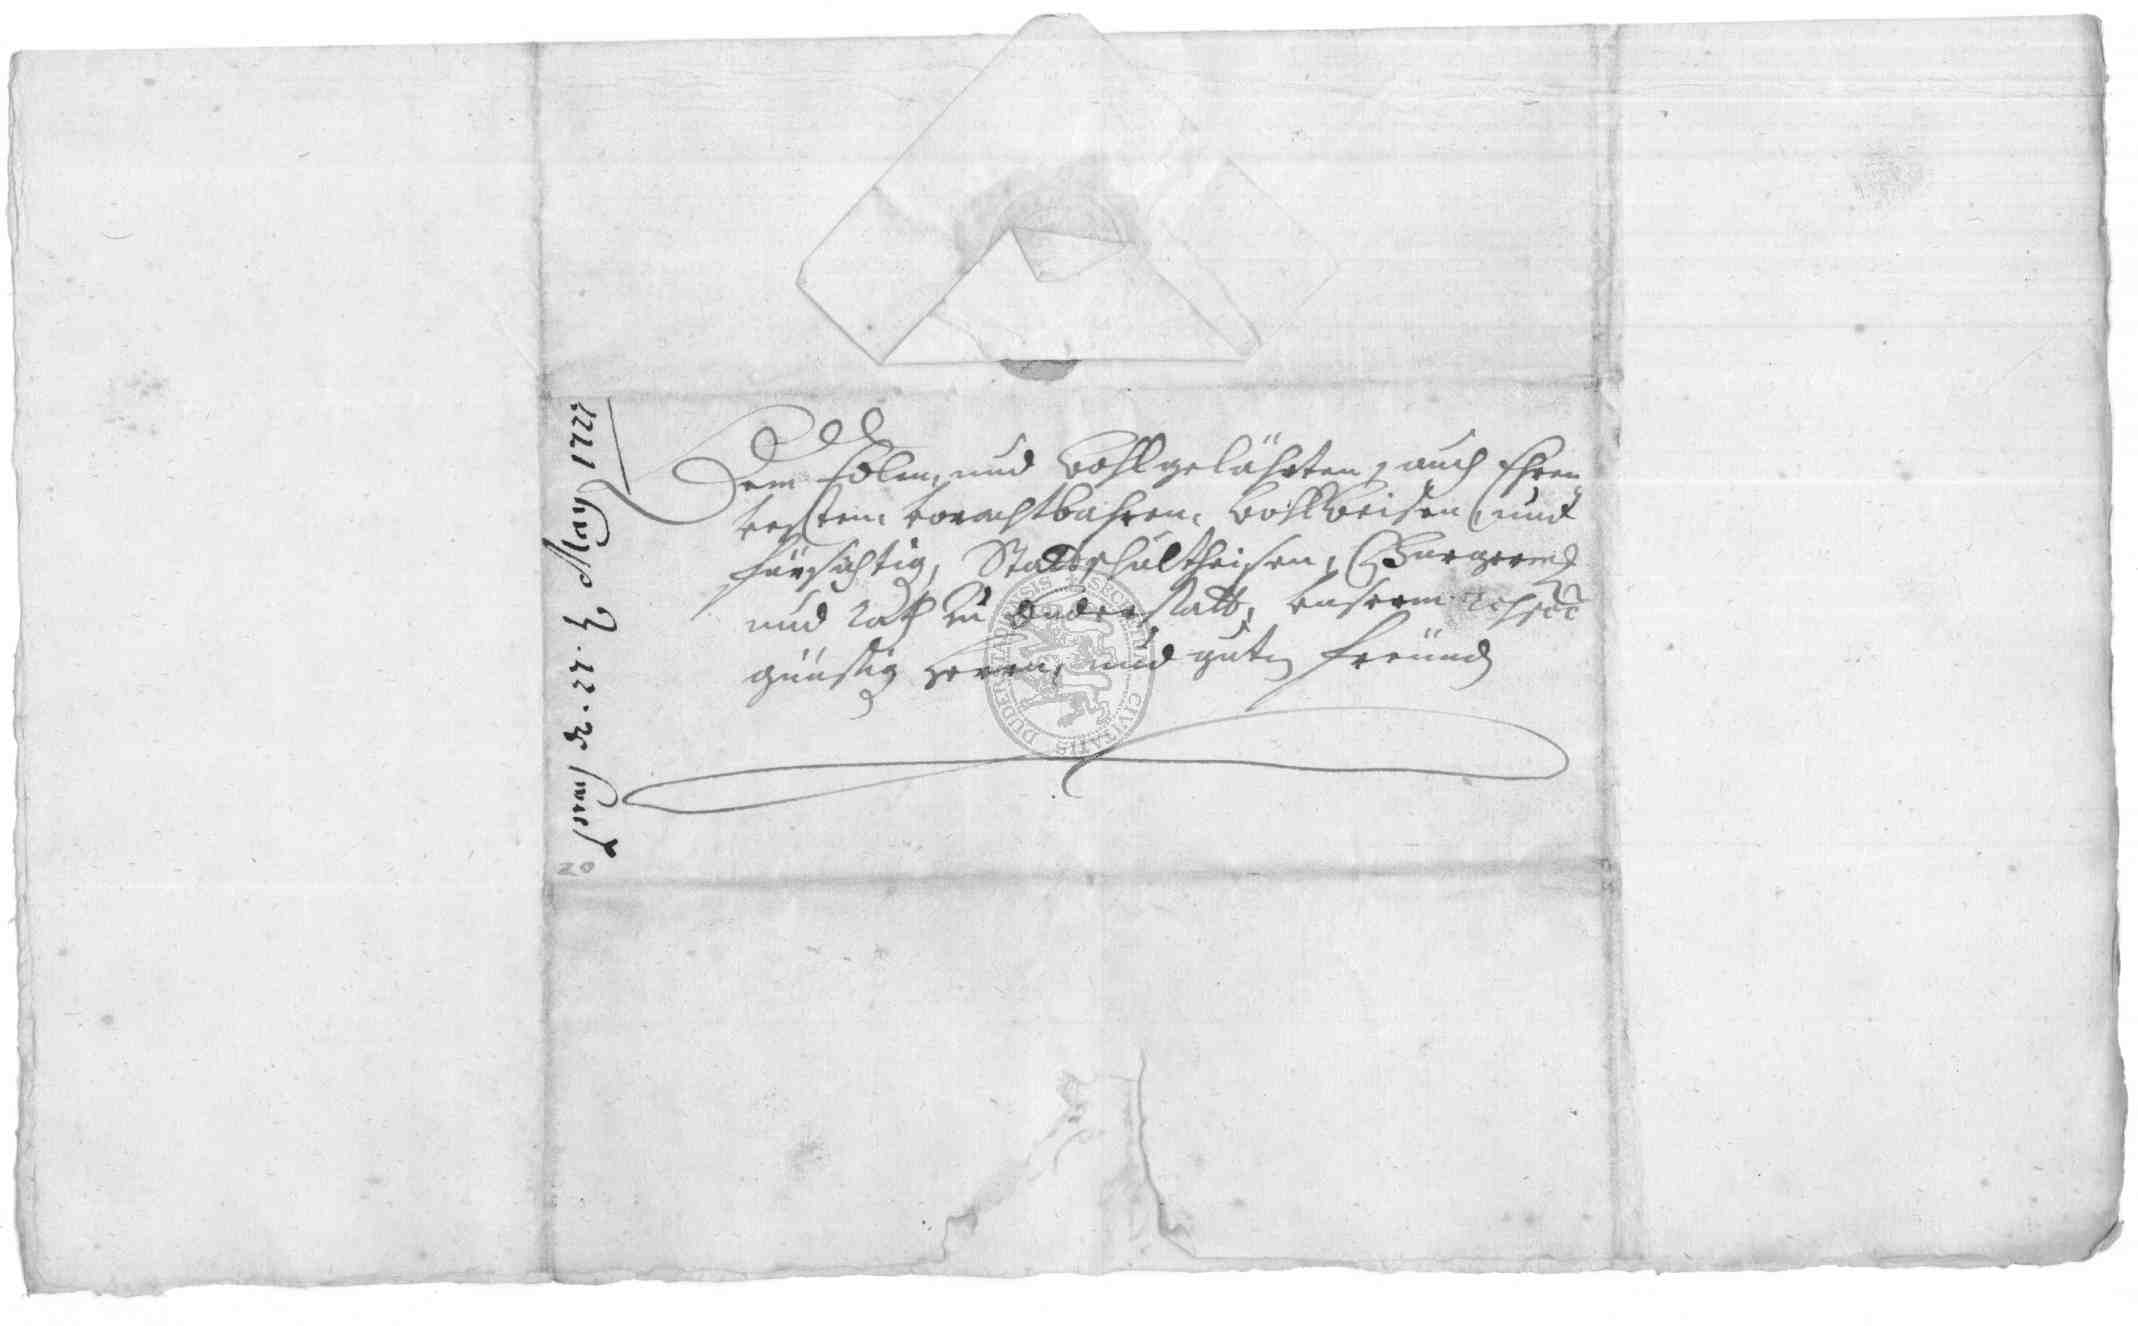 Dem Edlen, und Wohlgelährten, auch Ehren
vesten, vorachtbahren, Wohlweisen, und
fürsichtig, Stadtschultheisen, Burgerm
und Rath zu Duderstatt, unserm
günstig Herrn, und gutn freünd
den 27 May 1727
20
SIGILLUM CIVITATIS DUDERSTADENSIS